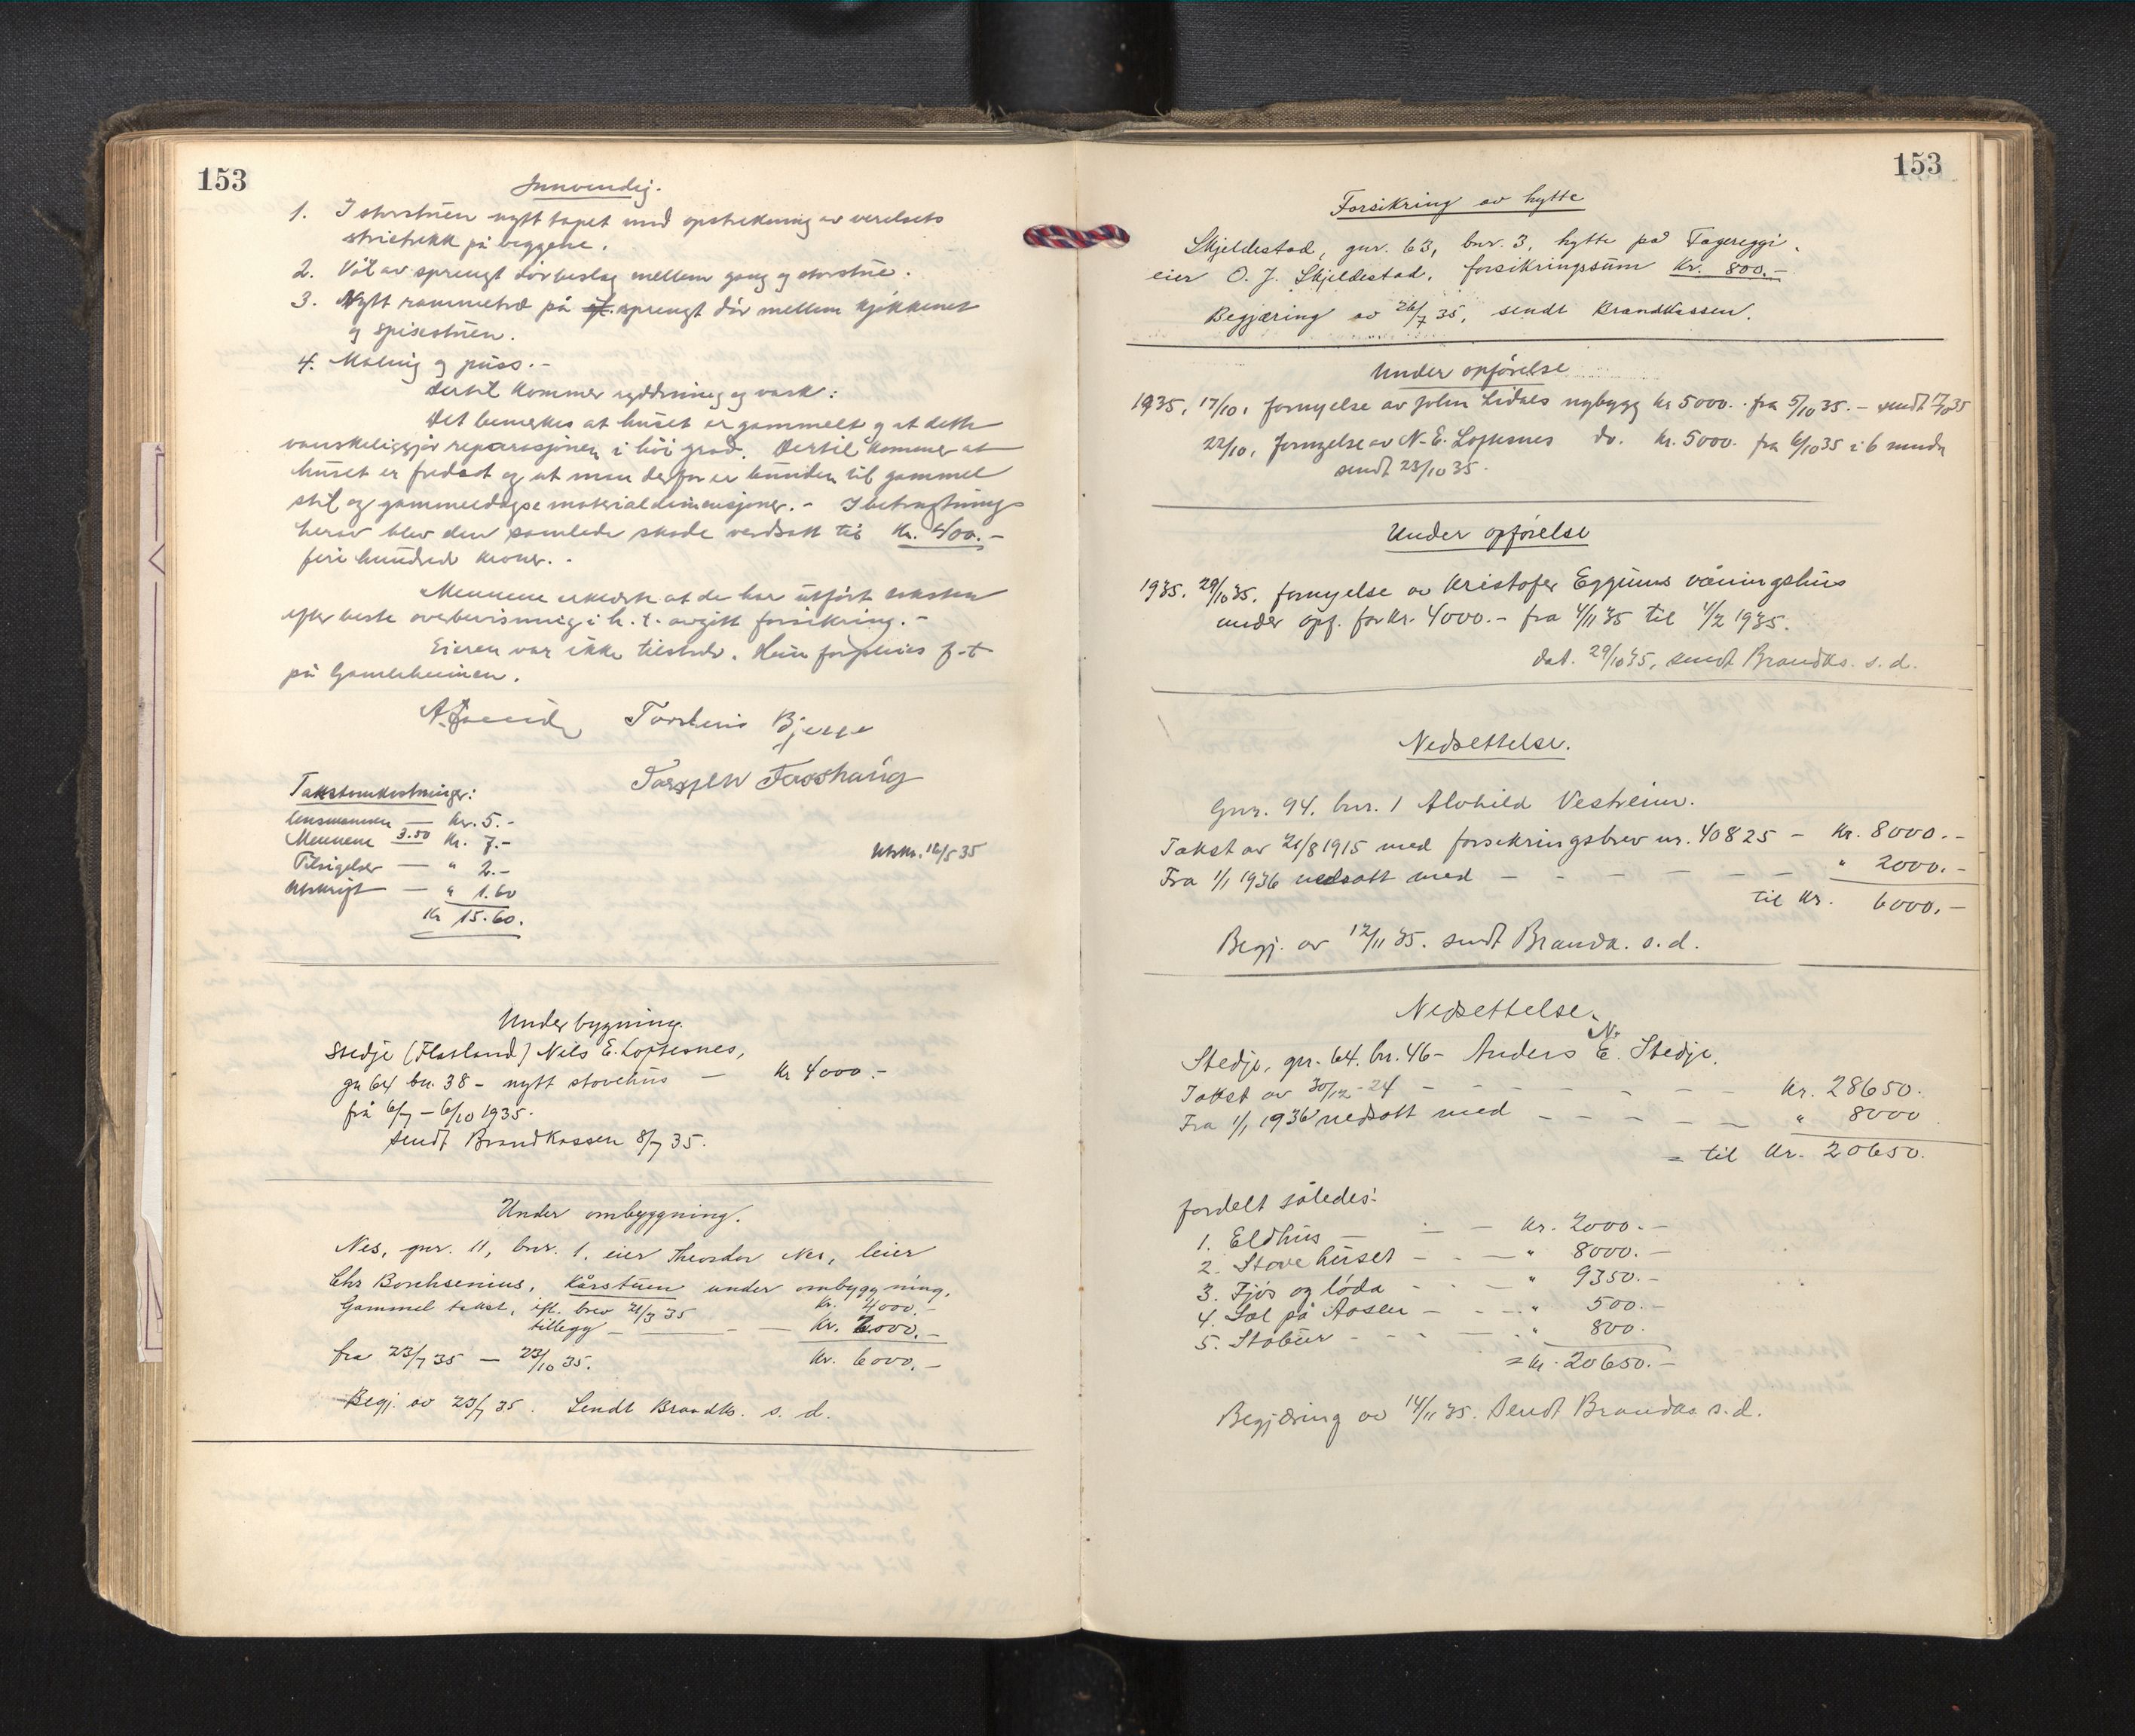 153
Innvendig.
1. I storstuen nytt tapet med opstrekning av verelsets
strietrekk på veggene.
2. Völ av sprengt dörbeslag mellem gang og storstue.
3. Nytt rammetre på sprengt dör mellem kjökkenet
og spisestuen.
4. Maling og puss. -
Dertil kommer ryddning og vask:
Det bemerkes at huset er gammelt og at dette
vanskeliggjör reparasjonen i höi grad. Dertil kommer at
huset er fredet og at man derfor er bunden til gammel
stil og gammeldagse materialdimensjoner. - I betraktning
herav blev den samlede skade verdsatt til Kr. 400. -
fire hundred kroner. -
Mennene erklærte at de har utfört taksten
efter beste overbevisning i h. t. avgitt forsikring. -
Eieren var ikke tilstede. Hun forpleies p. t
på Gamleheimen.
Torstein Bjerge
Takstomkostninger:
lensmannen — kr. 5.-
Mennene 3.50 kr. 7.-
Tilsigelser — " 2.-
Avskrift — " 1.60
Kr 15.60.
Utskr. 16/5 35
Under bygning.
Stedje (Flatland) Nils E. Loftesnes,
gr 64 br. 38 - nytt stovehus — Kr 4000.-
frå 6/7 - 6/10 1935.
Sendt Brandkassen 8/7 35.
Under ombyggning.
Nes, gnr. 11, bnr. 1. eier Theodor Nes, leier
Chr Borchsenius, Kårstuen under ombyggning.
Gammel takst, ifl. brev 21/3 35 Kr. 4000.-
tillegg — — — Kr. 2000.-
fra 23/7 35 — 23/10 35. Kr. 6000.-
Begj. av 23/7 35. Sendt Brandk. s. d.
153
Forsikring av hytte
Skjeldestad, gnr. 63, bnr. 3, hytte på Fagereggi.
eier O. J. Skjeldestad, forsikringssum Kr. 800.-
Begjæring av 26/7 35, sendt Brandkassen.
Under opförelse
1935, 17/10, fornyelse av John Lidals nybygg kr 5000.- fra 5/10 35. - sendt 17/10 35
22/10, fornyelse av N. E. Loftesnes do. kr. 5000. fra 6/10 35 i 6 mndr
sendt 23/10 35.
Under opförelse
1935. 29/10 35. fornyelse av Kristofer Eggums våningshus
under opf. for kr. 4000.- fra 4/11 35 til 4/2 1935.
dat. 29/10 35, sendt Brandks. s. d.
Nedsettelse.
Gnr. 94, bnr. 1 Alvhild Vestreim.
Takst av 21/8 1915 med forsikringsbrev nr. 40825 - Kr. 8000.-
Fra 1/1 1936 nedsatt med - - - - - - " 2000.-
til kr. 6000.-
Begj. av 12/11 35. sendt Brandk. s. d.
Nedsettelse.
Stedje, gr. 64. br. 46 - Anders N. E. Stedje.
Takst av 30/12 - 24 - - - - - - - Kr. 28650.
Fra 1/1 1936 nedsatt med - - - - - " 8000
= til kr. 20650.
fordelt således:
1. Eldhus — — — kr. 2000.-
2. Stovehuset - - — " 8000.-
3. Fjös og löda - - — " 9350.-
4. Sel på Åosen - - - " 500.-
5. Stabur - - - — " 800.
= kr. 20650.-
Begjæring av 14/11 35. Sendt Brandks s. d.